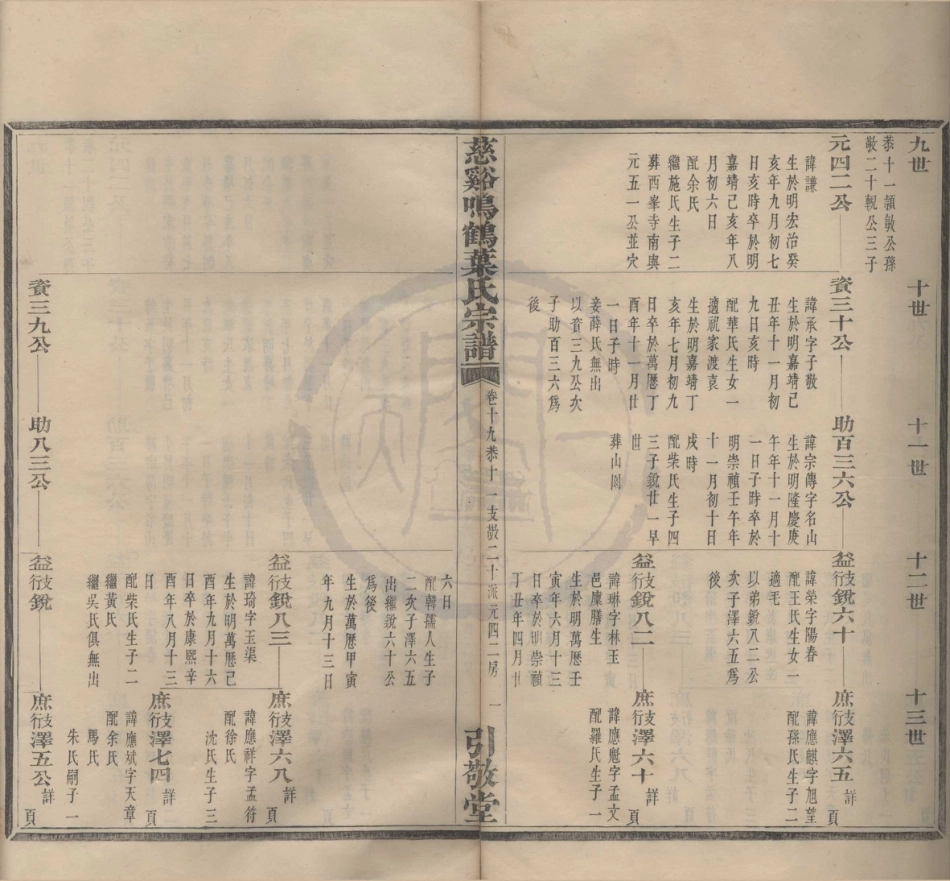 九世
恭十一領敏公孫
敬二十親公三子
元四二公
諱謙
生於明宏治癸
亥年九月初七
日亥時卒於明
嘉靖己亥年八
月初六日
配余氏
繼施氏生子二
葬西峯寺南與
元五一公並穴
十世
資三十公
諱承字子敬
生於明嘉靖己
丑年十一月初
九日亥時
配華氏生女一
適祝家渡袁
生於明嘉靖丁
亥年七月初九
日卒於萬曆丁
酉年十一月廿
一日子時
妾薛氏無出
以資三九公次
子助百三六爲
後
十一世
助百三六公
諱宗傳字名山
生於明隆慶庚
午年十一月十
一日子時卒於
明崇禎壬午年
十一月初十日
戌時
配柴氏生子四
三子銳廿一早
世
葬山崗
十二世
益支行銳六十
諱榮字陽春
配王氏生女一
適毛
以弟銳八二公
次子澤六五爲
後
十三世
庶支行澤六五 詳 頁
諱應麒字旭望
配孫氏生子二
益支行銳八二
諱琳字林玉
邑廩膳生
生於明萬曆壬
寅年六月十三
日卒於明崇禎
丁丑年四月廿
庶支行澤六十 詳 頁
諱應魁字孟文
配羅氏生子一
慈谿鳴鶴葉氏宗譜
卷十九恭十一支敬二十派元四二房
一
引敬堂
六日
配韓孺人生子
二次子澤六五
出繼銳六十公
爲後
生於萬曆甲寅
年九月十三日
益支行銳八三
諱琦字玉渠
生於明萬曆己
酉年九月十六
日卒於康熙辛
酉年八月十三
日
配柴氏生子二
繼黃氏
繼吳氏俱無出
庶支行澤六八 詳 頁
諱應祥字孟符
配徐氏
沈氏生子三
庶支行澤七四 詳 頁
諱應斌字天章
配余氏
馬氏
朱氏嗣子一
資三九公
助八三公
益支行銳
庶支行澤五公 詳 頁